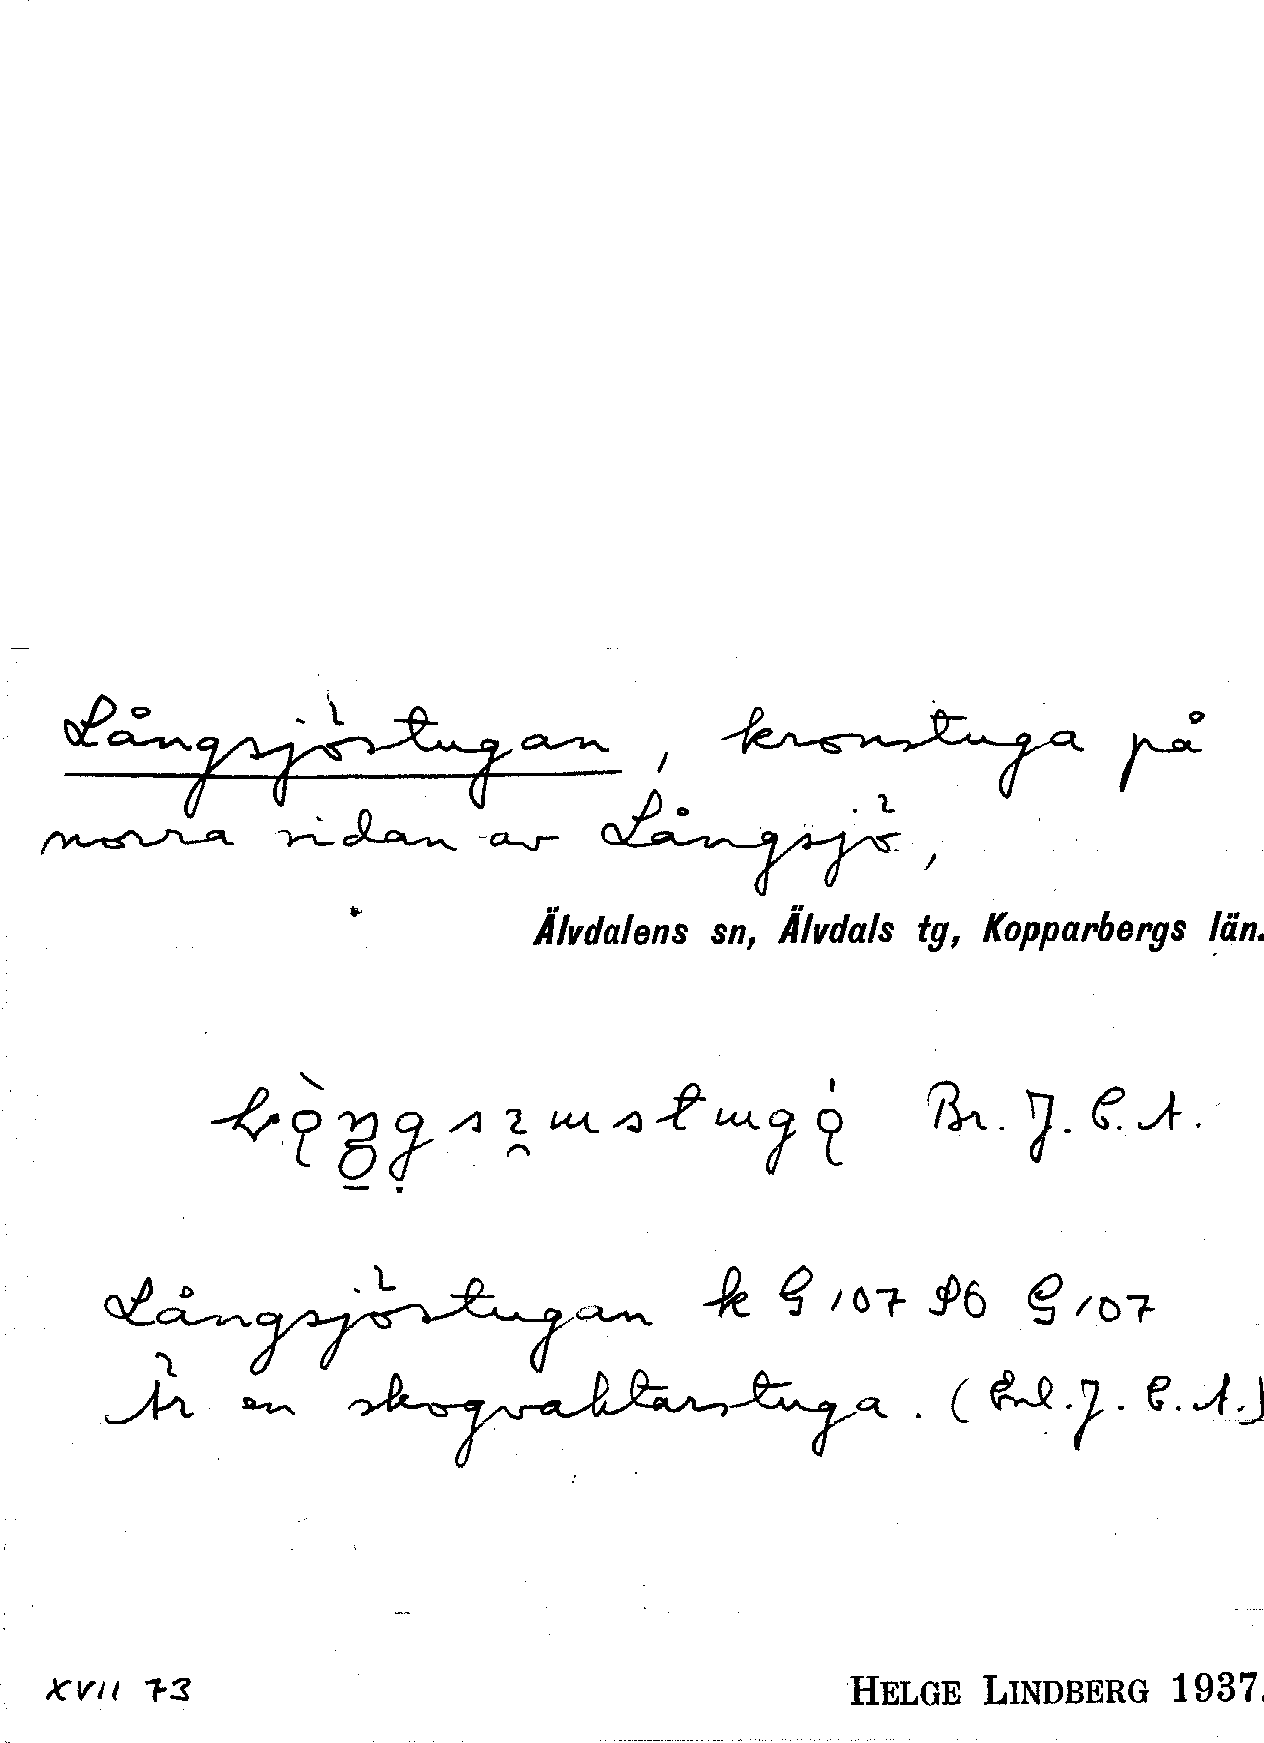 Långsjöstugan, kronstuga på
norra sidan av Långsjö,
Älvdalens sn, Älvdals tg, Kopparbergs län.
Br. J. E. A.
Långsjöstugan k G 107 Sb G 107
Är en skogvaktarstuga. (Enl. J. E. A.)
XVII 73
HELGE LINDBERG 1937.